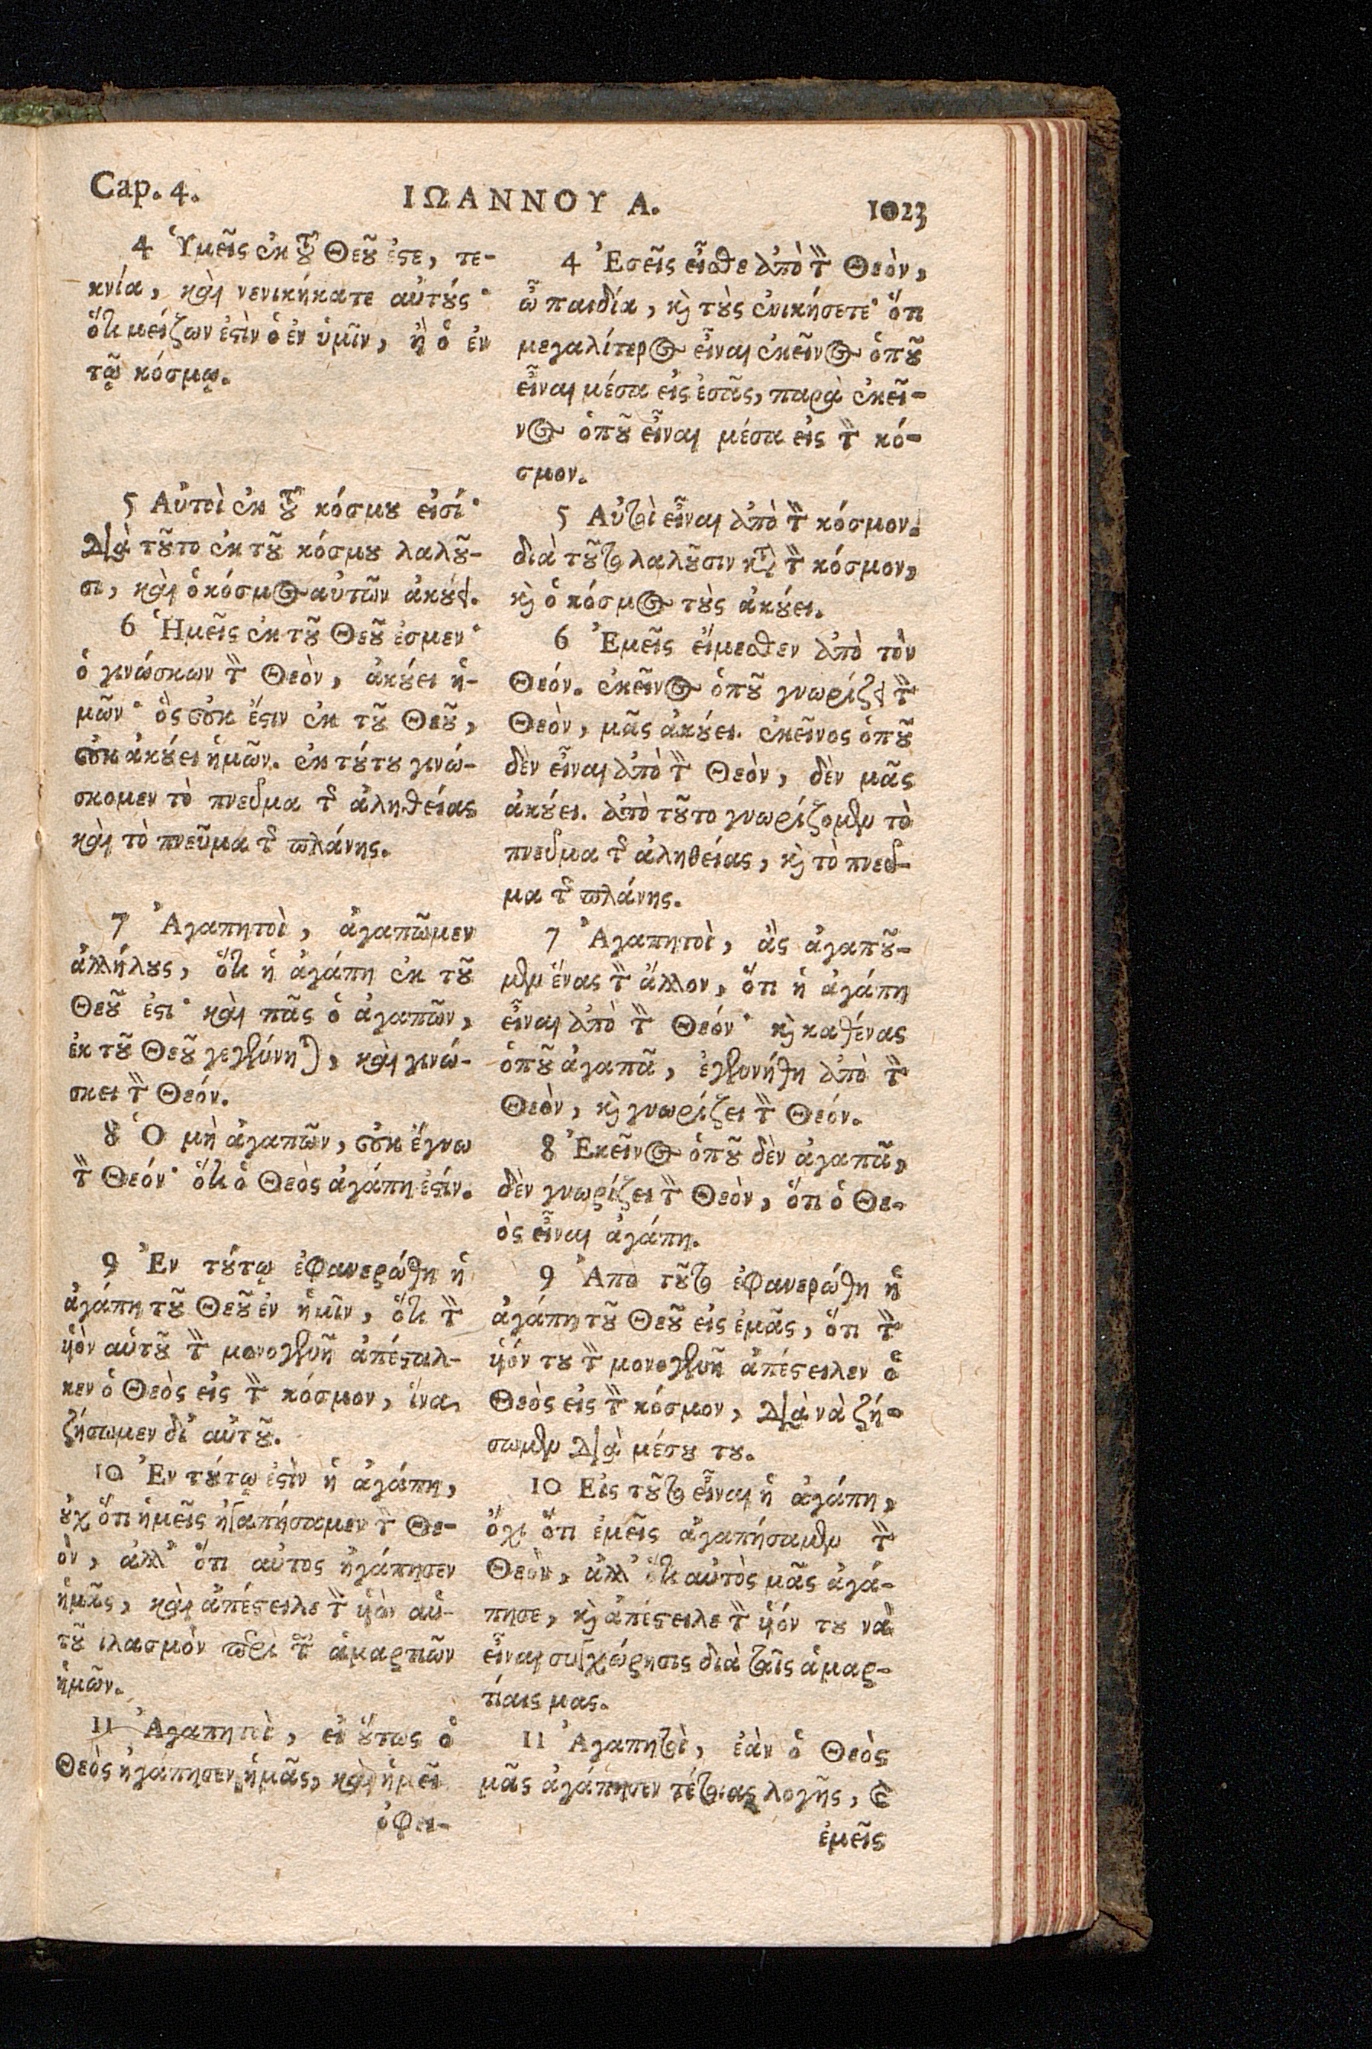 Cap. 4. ΙΩΑΝΝΟΥ Α. 1023
4 Ὑμεῖς ἐκ τοῦ Θεοῦ ἐστε, τε-
κνία, καὶ νενικήκατε αὐτούς·
ὅτι μείζων ἐστὶν ὁ ἐν ὑμῖν, ἢ ὁ ἐν
τῷ κόσμῳ.
5 Αὐτοὶ ἐκ τοῦ κόσμου εἰσί·
διὰ τοῦτο ἐκ τοῦ κόσμου λαλοῦ-
σι, καὶ ὁ κόσμος αὐτῶν ἀκούει.
6 Ἡμεῖς ἐκ τοῦ Θεοῦ ἐσμεν·
ὁ γινώσκων τὸν Θεὸν, ἀκούει ἡ-
μῶν· ὃς οὐκ ἔστιν ἐκ τοῦ Θεοῦ,
οὐκ ἀκούει ἡμῶν. ἐκ τούτου γινώ-
σκομεν τὸ πνεῦμα τῆς ἀληθείας
καὶ τὸ πνεῦμα τῆς πλάνης.
7 Ἀγαπητοὶ, ἀγαπῶμεν
ἀλλήλους, ὅτι ἡ ἀγάπη ἐκ τοῦ
Θεοῦ ἐστι· καὶ πᾶς ὁ ἀγαπῶν,
ἐκ τοῦ Θεοῦ γεγέννηται, καὶ γινώ-
σκει τὸν Θεόν.
8 Ὁ μὴ ἀγαπῶν, οὐκ ἔγνω
τὸν Θεόν· ὅτι ὁ Θεὸς ἀγάπη ἐστίν.
9 Ἐν τούτῳ ἐφανερώθη ἡ
ἀγάπη τοῦ Θεοῦ ἐν ἡμῖν, ὅτι τὸν
υἱὸν αὑτοῦ τὸν μονογενῆ ἀπέσταλ-
κεν ὁ Θεὸς εἰς τὸν κόσμον, ἵνα
ζήσωμεν δι' αὐτοῦ.
10 Ἐν τούτῳ ἐστὶν ἡ ἀγάπη,
οὐχ ὅτι ἡμεῖς ἠγαπήσαμεν τὸν Θε-
ὸν, ἀλλ' ὅτι αὐτος ἠγάπησεν
ἡμᾶς, καὶ ἀπέστειλε τὸν υἱὸν αὑ-
τοῦ ἱλασμὸν περὶ τῶν ἁμαρτιῶν
ἡμῶν.
11 Ἀγαπητοὶ, εἰ οὕτως ὁ
Θεὸς ἠγάπησεν ἡμᾶς, καὶ ἡμεῖς
ὀφει-
4 Ἐσεῖς εἶσθε ἀπὸ τὸν Θεὸν,
ὦ παιδία, καὶ τοὺς ἐνικήσετε· ὅτι
μεγαλίτερος εἶναι ἐκεῖνος ὁποῦ
εἶναι μέσα εἰς ἐσᾶς, παρὰ ἐκεῖ-
νος ὁποῦ εἶναι μέσα εἰς τὸν κό-
σμον.
5 Αὐτοὶ εἶναι ἀπὸ τὸν κόσμον.
διὰ τοῦτο λαλοῦσιν κατὰ τὸν κόσμον,
καὶ ὁ κόσμος τοὺς ἀκούει.
6 Ἐμεῖς εἴμεσθεν ἀπὸ τὸν
Θεόν. ἐκεῖνος ὁποῦ γνωρίζει τὸν
Θεὸν, μᾶς ἀκούει. ἐκεῖνος ὁποῦ
δὲν εἶναι ἀπὸ τὸν Θεὸν, δὲν μᾶς
ἀκούει. ἀπὸ τοῦτο γνωρίζομεν τὸ
πνεῦμα τῆς ἀληθείας, καὶ τὸ πνεῦ-
μα τῆς πλάνης.
7 Ἀγαπητοὶ, ἂς ἀγαποῦ-
μεν ἕνας τὸν ἄλλον, ὅτι ἡ ἀγάπη
εἶναι ἀπὸ τὸν Θεόν· καὶ καθένας
ὁποῦ ἀγαπᾶ, ἐγεννήθη ἀπὸ τὸν
Θεὸν, καὶ γνωρίζει τὸν Θεόν.
8 Ἐκεῖνος ὁποῦ δὲν ἀγαπᾶ,
δὲν γνωρίζει τὸν Θεὸν, ὅτι ὁ Θε-
ὸς εἶναι ἀγάπη.
9 Ἀπὸ τοῦτο ἐφανερώθη ἡ
ἀγάπη τοῦ Θεοῦ εἰς ἐμᾶς, ὅτι τὸν
υἱόν του τὸν μονογενῆ ἀπέστειλεν ὁ
Θεὸς εἰς τὸν κόσμον, διὰ νὰ ζή-
σωμεν διὰ μέσου του.
10 Εἰς τοῦτο εἶναι ἡ ἀγάπη,
ὄχι ὅτι ἐμεῖς ἀγαπήσαμεν τὸν
Θεὸν, ἀλλ' ὅτι αὐτὸς μᾶς ἀγά-
πησε, καὶ ἀπέστειλε τὸν υἱόν του νὰ
εἶναι συγχώρησις διὰ ταῖς ἁμαρ-
τίαις μας.
11 Ἀγαπητοὶ, ἐὰν ὁ Θεὸς
μᾶς ἀγάπησεν τέτοιας λογῆς, καὶ
ἐμεῖς